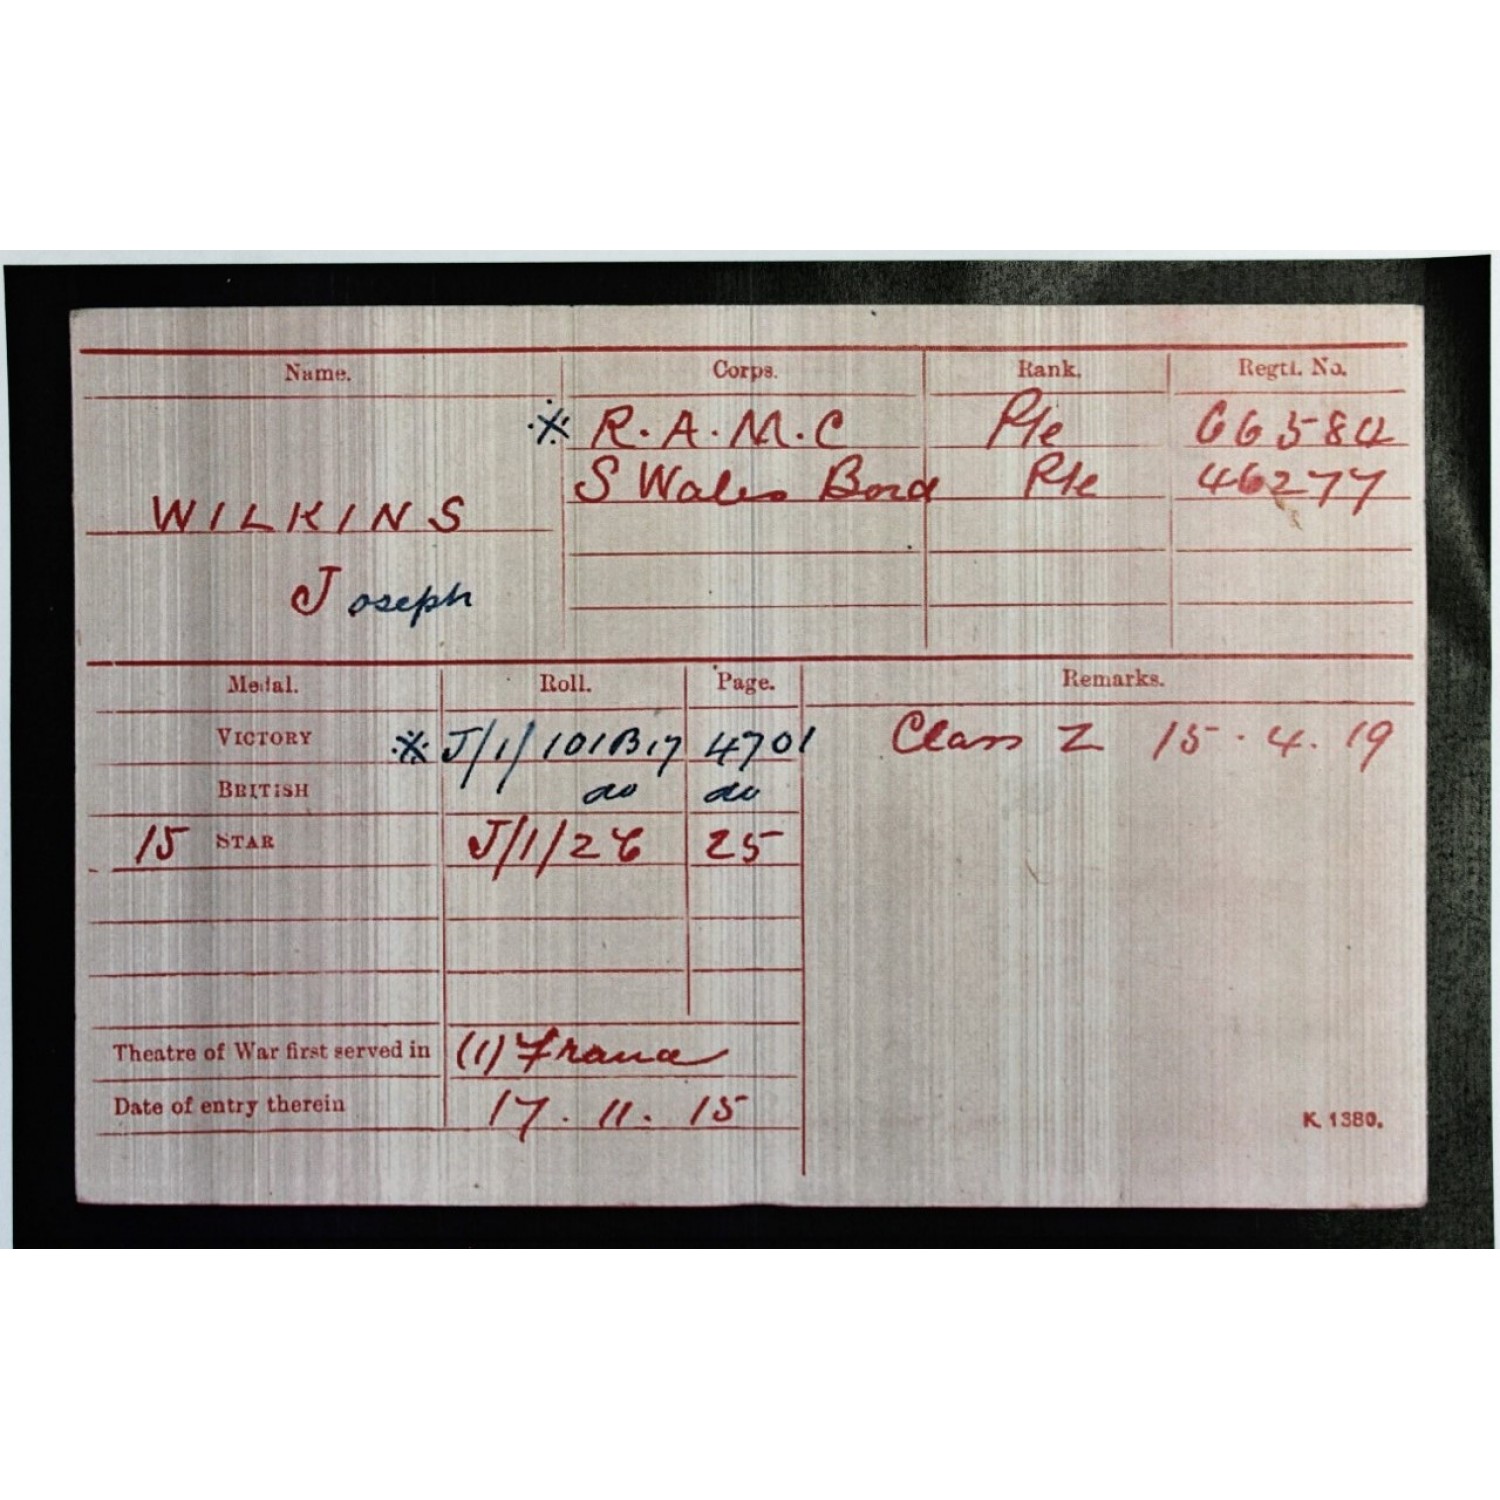 Name. Corps. Rank. Regtl. No.
※ R.A.M.C Pte 66584
S Wales Bord Pte 46277
WILKINS
Joseph
Medal. Roll. Page. Remarks.
VICTORY ※ J/1/101B17 4701 Class Z 15.4.19
BRITISH do do
15 STAR J/1/26 25
Theatre of War first served in (1) France
Date of entry therein 17.11.15
K. 1380.